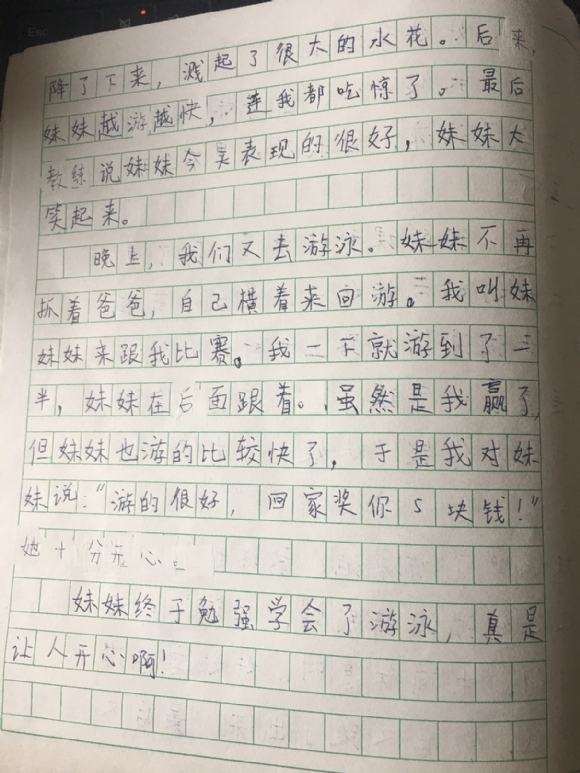 降了下来，溅起了很大的水花。后来，
妹妹越游越快，连我都吃惊了。最后
教练说妹妹今天表现的很好，妹妹大
笑起来。
晚上，我们又去游泳。妹妹不再
抓着爸爸，自己横着来回游。我叫妹
妹妹来跟我比赛。我一下就游到了一
半，妹妹在后面跟着。虽然是我赢了，
但妹妹也游的比较快了，于是我对妹
妹说：“游的很好，回家奖你5块钱！”
她十分开心。
妹妹终于勉强学会了游泳，真是
让人开心啊！